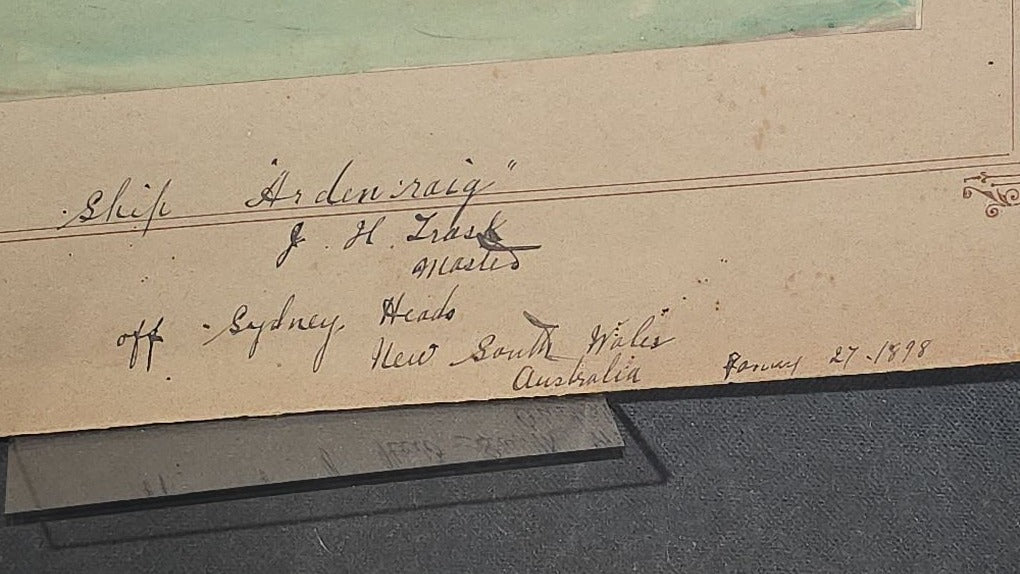 Ship "Ardencraig"
J. H. Trask
Master
off Sydney Heads
New South Wales
Australia
January 27 - 1898